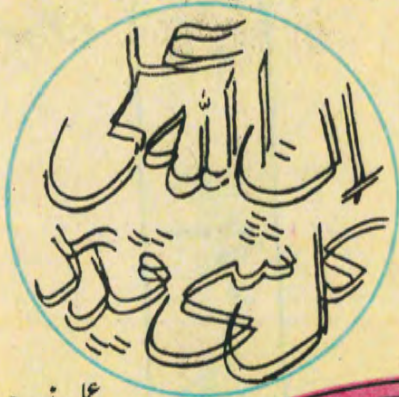 ان الله علی
کل شی قدیر